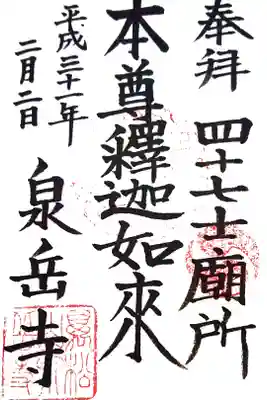 奉拝 四十七士廟所
本尊釋迦如來
平成三十一年
二月二日
泉岳寺